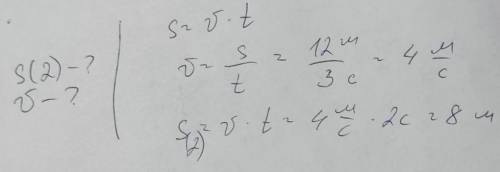 s = v · t
s(2) - ?
v - ?
v = s/t = 12 м / 3 с = 4 м/с
s(2) = v · t = 4 м/с · 2 с = 8 м